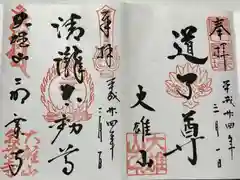 奉拝
平成廿四年
三月一日
道了尊
大雄山
奉拝
平成廿四年
三月一日
清瀧不動尊
大雄山